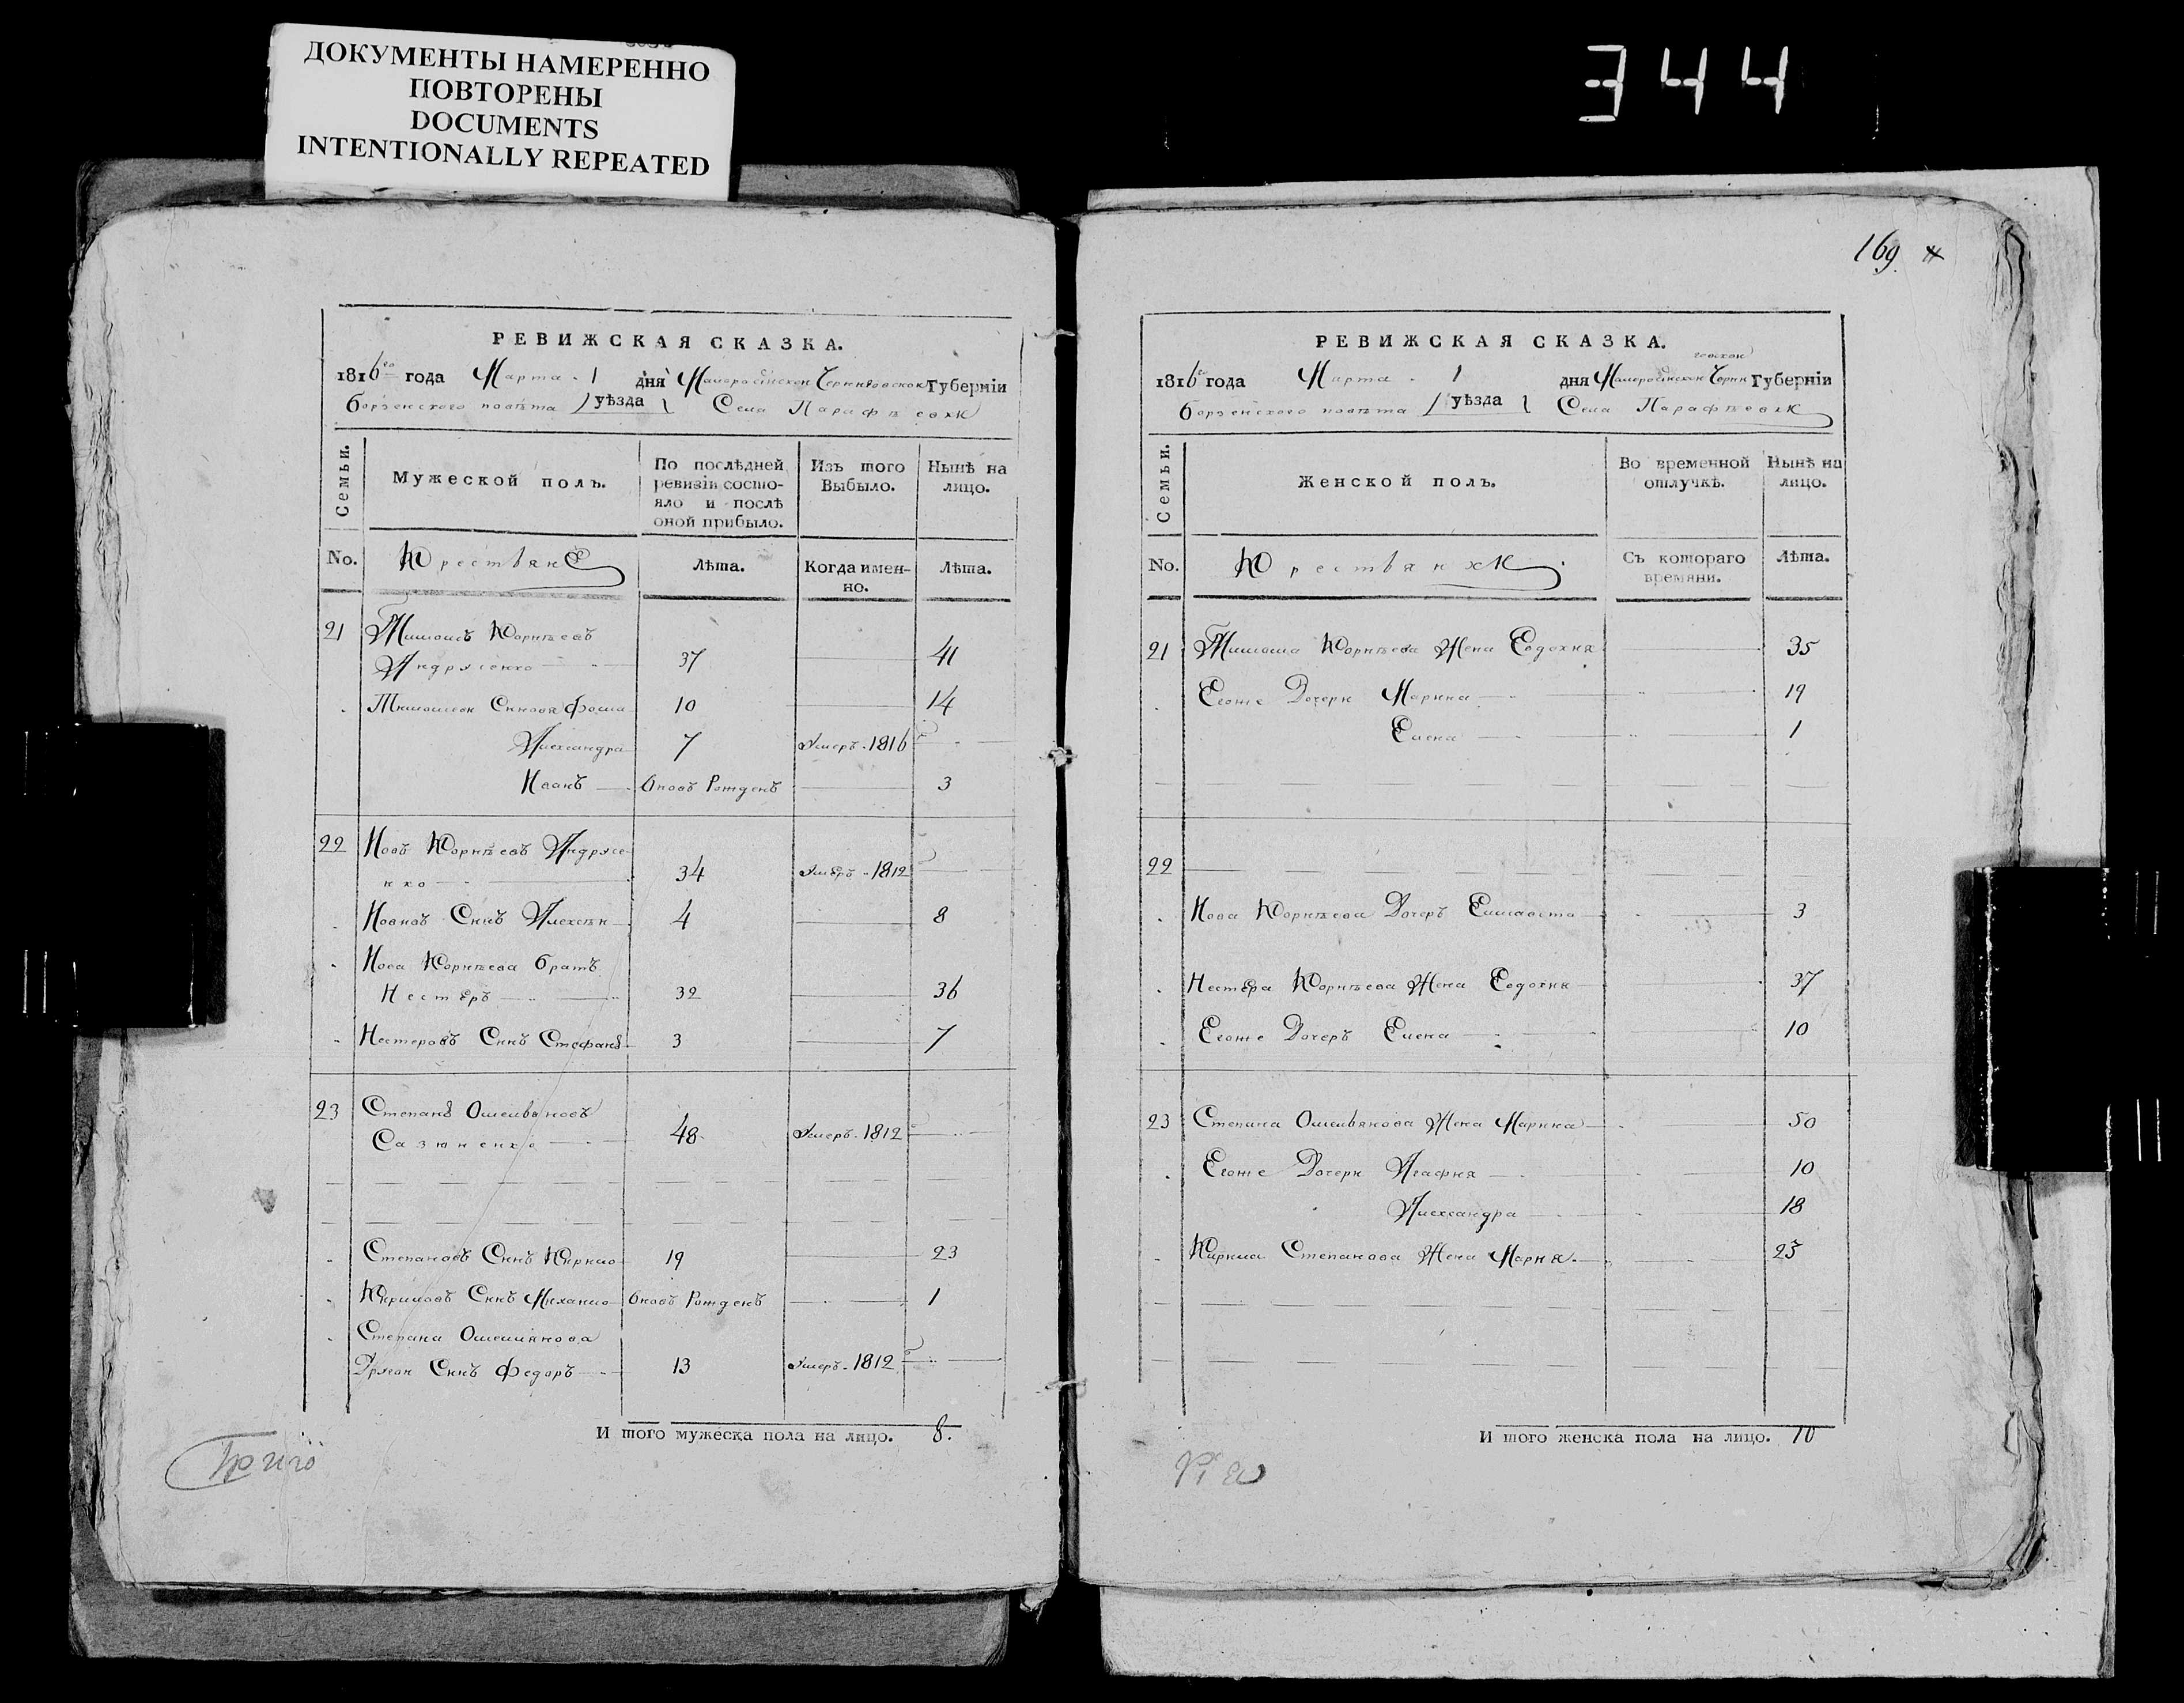 ДОКУМЕНТЫ НАМЕРЕННО
ПОВТОРЕНЫ
DOCUMENTS
INTENTIONALLY REPEATED
344
РЕВИЖСКАЯ СКАЗКА.
1816го года Марта 1 дня Малоросійской Черниговской Губерніи
борзенского повѣта уѣзда Села Парафѣевки
Семьи.
Мужеской полъ.
По послѣдней ревизіи состояло и послѣ оной прибыло.
Изъ того Выбыло.
Нынѣ на лицо.
No.
Крестьяне
Лѣта.
Когда именно.
Лѣта.
21 Корнѣевъ
Андрусенко 37 41
Сынова Фома 10 14
Александра 7 Умеръ 1816
Иванъ Вновь Рожденъ 3
22 Иовъ Корнѣевъ Андрусе-
нко 34 Умеръ 1812
Иововъ Сынъ Алексѣй 4 8
Иова Корнѣева братъ
Нестеръ 32 36
Нестеровъ Сынъ Стефанъ 3 7
23 Степанъ Омельяновъ
Сазоненко 48 Умеръ 1812
Степановъ Сынъ Кирило 19 23
Кириловъ Сынъ Михаило Вновь Рожденъ 1
Степана Омельянова
Другой Сынъ Федоръ 13 Умеръ 1812
И того мужеска пола на лицо. 8.
169
РЕВИЖСКАЯ СКАЗКА.
1816го года Марта 1 дня Малоросійской Черни говской Губерніи
борзенского повѣта уѣзда Села Парафѣевки
Семьи.
Женской полъ.
Во временной отлучкѣ.
Нынѣ на лицо.
No.
Крестьянки
Съ котораго времяни.
Лѣта.
21 Корнѣева Жена Евдокия 35
Егоже Дочери Марина 19
Елена 1
22
Иова Корнѣева Дочеръ Елисавета 3
Нестера Корнѣева Жена Евдокия 37
Егоже Дочеръ Елена 10
23 Степана Омельянова Жена Марина 50
Егоже Дочери Агафия 10
Александра 18
Кирила Степанова Жена Мария 23
И того женска пола на лицо. 10